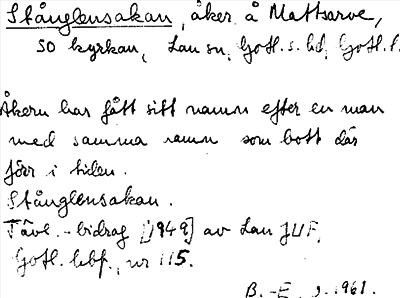 Stånglensakan, åker å Mattsarve,
SO kyrkan, Lau sn, Gotl. s. hd, Gotl. l.
Åkern har fått sitt namn efter en man
med samma namn som bott där
förr i tiden.
Stånglensakan.
Tävl.-bidrag [1949] av Lau JUF,
Gotl. hbf., nr 115.
B. -E. J. 1961.